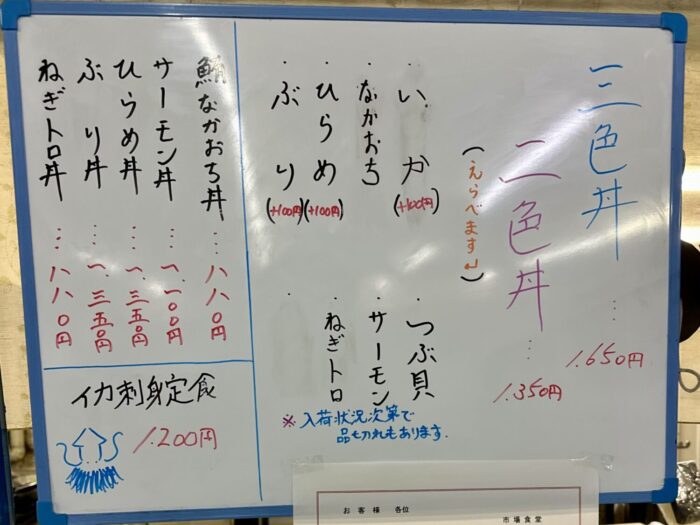 三色丼 … 1.650円
二色丼 … 1.350円
(えらべます↵)
・いか(+100円)
・なかおち
・ひらめ(+100円)
・ぶり(+100円)
・つぶ貝
・サーモン
・ねぎトロ
・
※入荷状況次第で
品切れもあります.
鮪なかおち丼…八八0円
サーモン丼…一、一00円
ひらめ丼…一、三五0円
ぶり丼…一、三五0円
ねぎトロ丼…八八0円
イカ刺身定食
1.200円
お客様 各位
市場食堂